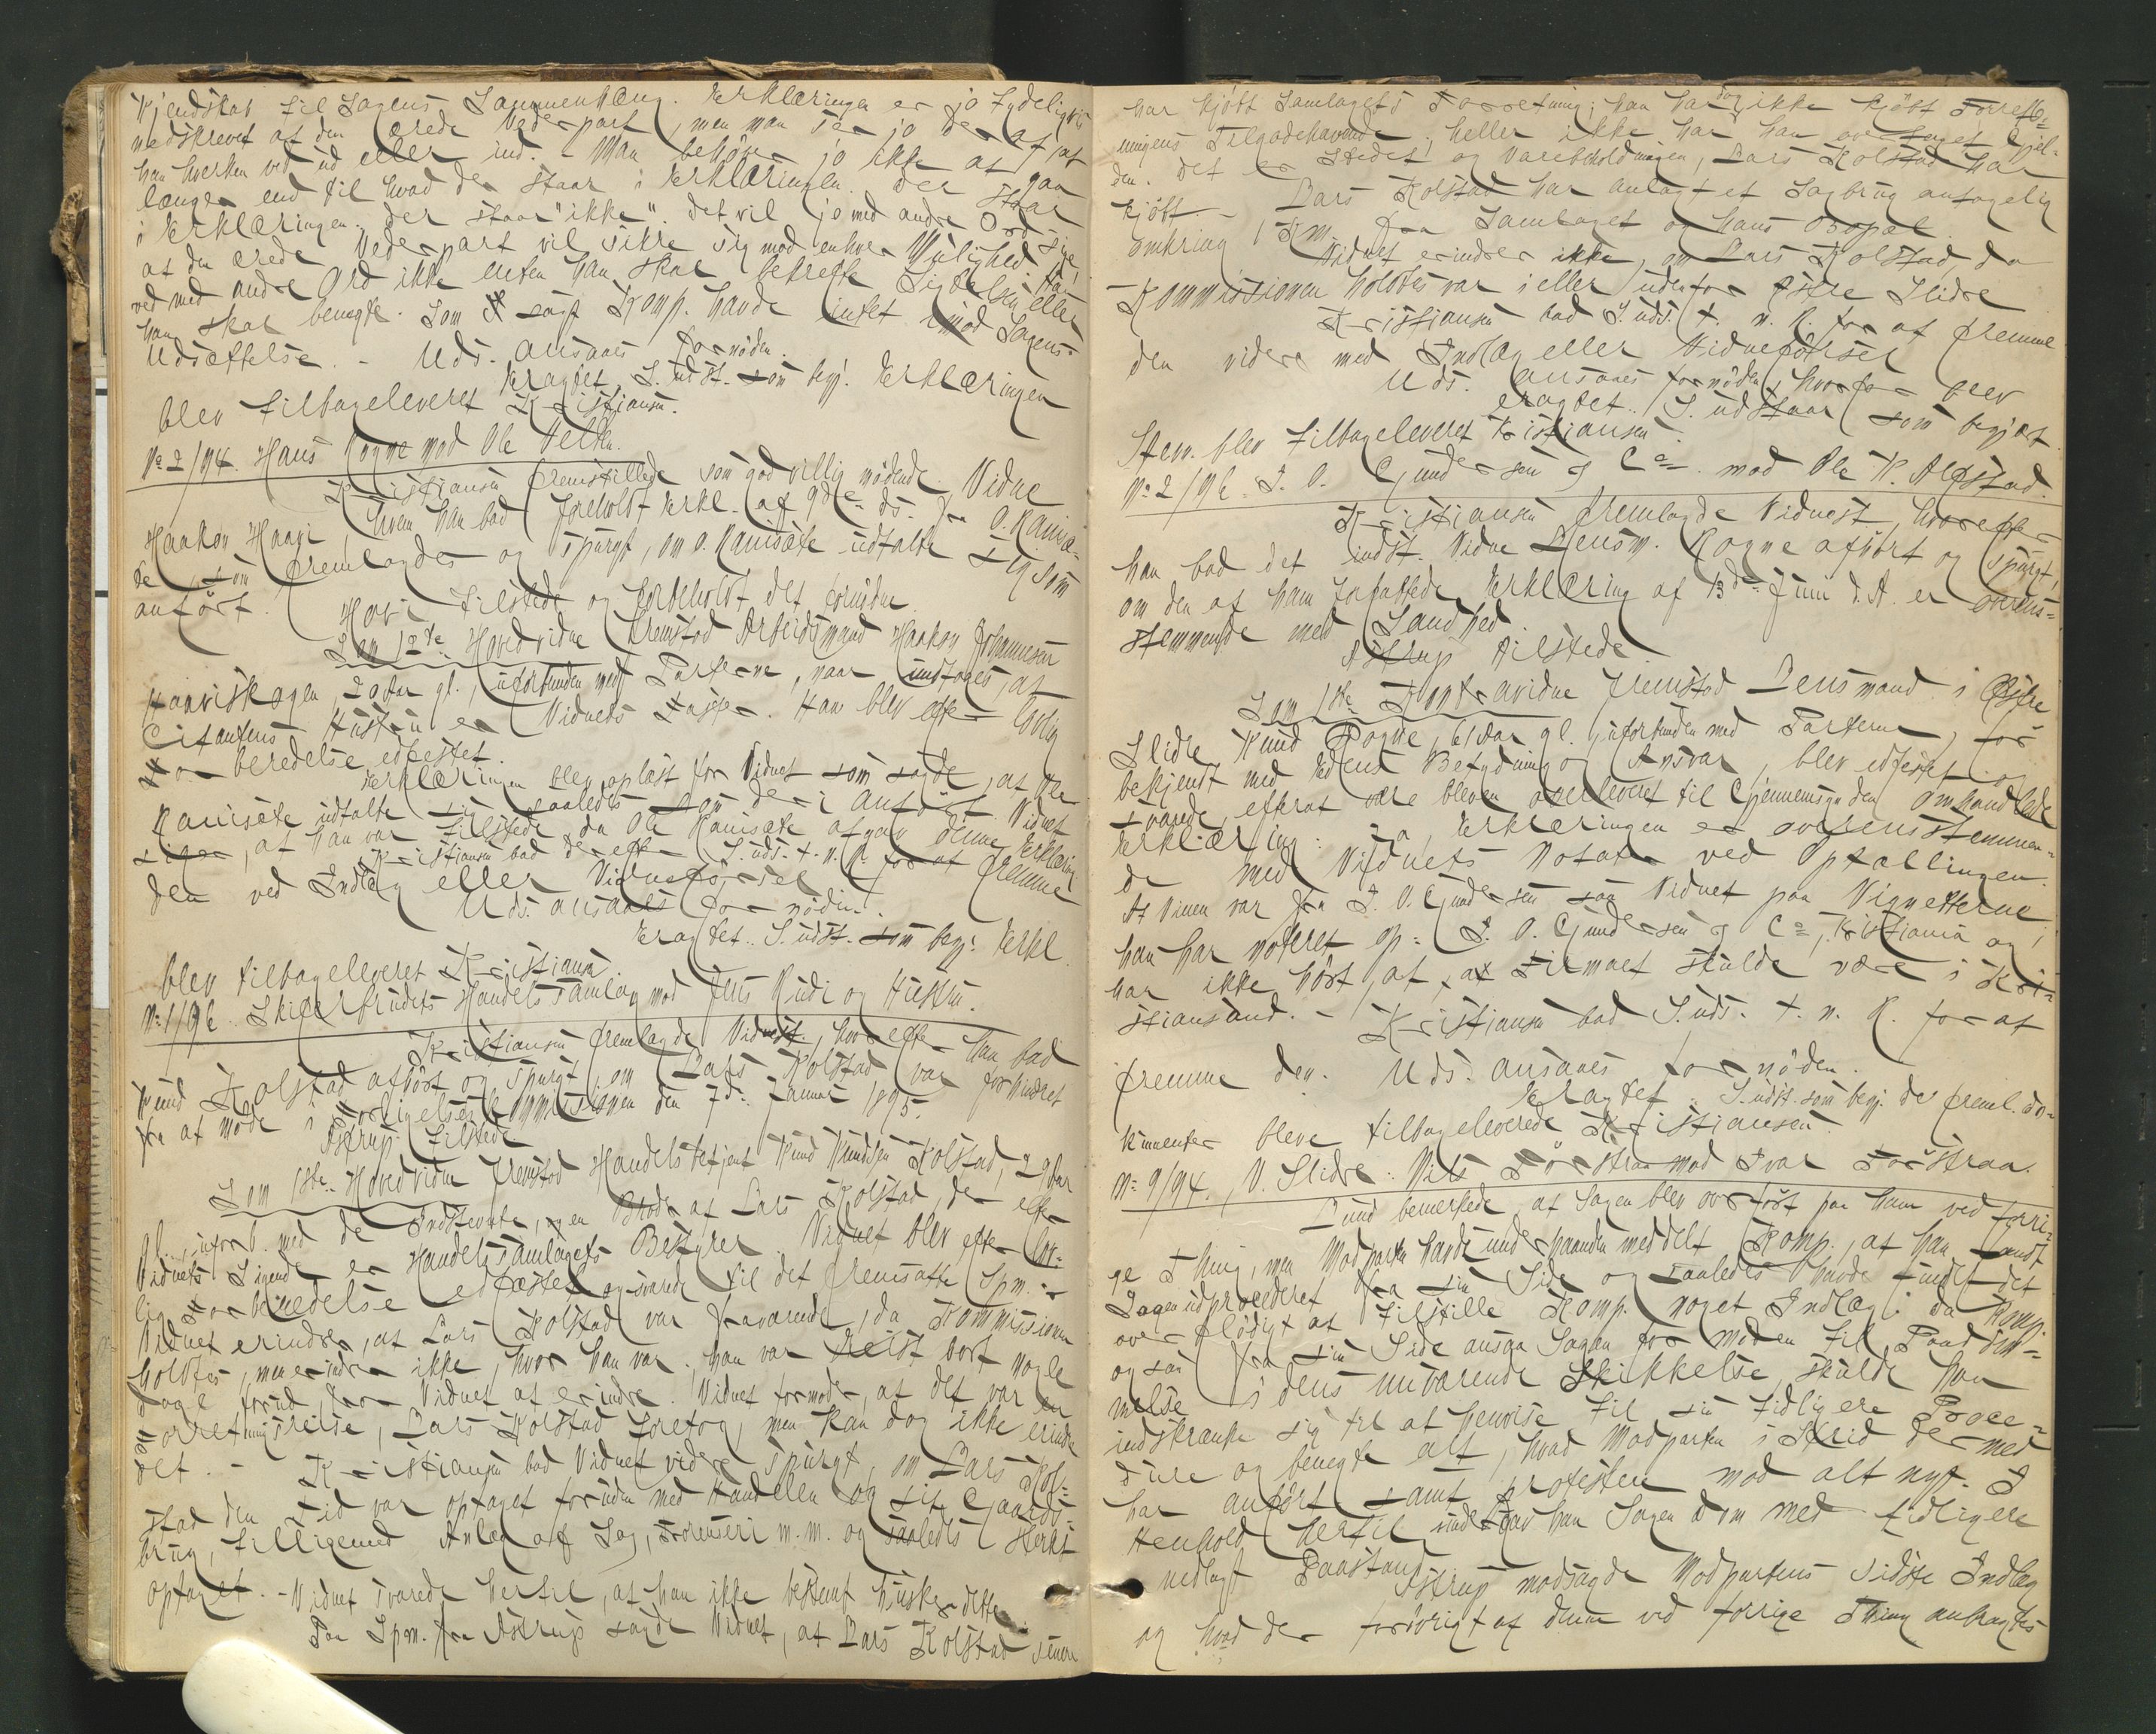 Kjendskab til Sagens Sammenhæng. Erklæringen er jo tydeligvis
nedskrevet af den ærede Vederpart, men man ser jo deraf, at
han hverken ved ud eller ind. - Man behøver jo ikke at gaa
længer end til hvad der staar i Erklæringen. Der staar
i Erklæringen: der staar "ikke". Det vil jo med andre Ord sige,
at den ærede Vederpart vil sikre sig mod enhver Mulighed. Han
ved med andre Ord ikke enten han skal bekræfte Sigtelsen eller
han skal benegte. Som sagt Komp. havde intet imod Sagens
Udsættelse. - Uds. ansaaes fornøden.
Eragtet: S. udst. som begj. Erklæringen
blev tilbageleveret Kristiansen.
No 2/94. Hans Rogne mod Ole Velta.
Kristiansen fremstillede som godvillig mødende Vidne
Haakon Haavi, hvem han bad foreholdt Erkl. af 9de ds. fra O. Kanisæ-
te, som fremlagdes og spurgt, om O. Kanisæte udtalte sig som
anført.
Hovi tilstede og forbeholdt det fornødne.
Som 12te Hovedvidne fremstod Arbeidsmand Haakon Johannesen
Haaviskagen, 20 Aar gl., uforbunden med Parterne, naar undtages, at
Citantens Hustru er Vidnets Faster. Han blev efter lovlig
Forberedelse edfæstet.
Erklæringen blev oplæst for Vidnet som sagde, at Ole
Kanisæte udtalte sig saaledes som deri anført. Vidnet
siger, at han var tilstede, da Ole Kanisæte afgav denne Erklæring
Kristiansen bad derefter S. uds. t. n. R. for at fremme
den ved Indlæg eller Vidneførsel
Uds. ansaaes fornøden.
Eragtet: S. udst. som begj. Erkl.
blev tilbageleveret Kristiansen.
No 1/96. Skiferbrudets Handelssamlag mod Jens Rudi og Hustru.
Kristiansen fremlagde Vidnest., hvorefter han bad
Knud Kolstad afhørt og spurgt, om Lars Kolstad var forhindret
fra at møde i Forligelseskommissionen den 7de Januar 1895.
Astrup tilstede
Som 1ste Hovedvidne fremstod Handelsbetjent Knud Knudsen Kolstad, 29 Aar
gl., uforb. med de Indstevnte, en Broder af Lars Kolstad, der efter
Vidnets Sigende er Handelssamlagets Bestyrer. Vidnet blev efter lov-
lig Forberedelse edfæstet og svarede til det fremsatte Spm.:
Vidnet erindrer, at Lars Kolstad var fraværende, da Kommissionen
holdtes, men erindrer ikke, hvor han var. han var reist bort nogle
Dage forud for Vidnet at erindre. Vidnet formoder, at det var en
Forretningsreise, Lars Kolstad foretog, men kan dog ikke erindre
det. - Kristiansen bad Vidnet videre spurgt, om Lars Kol-
stad den Tid var optaget foruden med Handelen og sit Gaards-
brug, tilligemed Anlæg af Sag, m.m. og saaledes sterkt
optaget. - Vidnet svarede hertil, at han ikke bestemt husker dette.
Paa Spm. fra Astrup sagde Vidnet, at Lars Kolstad senere
har kjøbt Samlagets Forretning; han har dog ikke kjøbt Forret-
ningens Tilgodehavende; heller ikke har han overtaget Gjæl-
den. det er Stedet og Varebeholdningen, Lars Kolstad har
kjøbt. - Lars Kolstad har anlagt et Sagbrug antagelig
omkring 1 Km. fra Samlaget og hans Bopæl.
Vidnet erindrer ikke, om Lars Kolstad, da
Kommissionen holdtes var i eller udenfor Østre Slidre
Kristiansen bad S. uds. t. n. R. for at fremme
den videre med Indlæg eller Vidneførsel
Uds. ansaaes fornøden, hvorfor blev
eragtet: S. udstaar som begjært
Stevn. blev tilbageleveret Kristiansen.
No 2/96. J. O. Gundersen & Co. mod Ole K. Alfstad.
Kristiansen fremlagde Vidnest., hvorefter
han bad det indst. Vidne Lensm. Rogne afhørt og spurgt,
om den af ham forfattede Erklæring af 13de Juni d. A. er overens-
stemmende med Sandhed.
Astrup tilstede.
Som 1ste Kontravidne fremstod Lensmand i Østre
Slidre Knud Rogne, 61 Aar gl. uforbunden med Parterne, for
bekjendt med Edens Betydning og Ansvar, blev edfæstet og
svarede, efterat være bleven overleveret til Gjennemsyn den omhandlede
Erklæring: Ja, Erklæringen er overensstemmen-
de med Vidnets Notater ved Optællingen.
At Vinen var fra J. O. Gundersen saa Vidnet paa Vignetterne
han har noteret op: J. O. Gundersen & Co, Kristiania og
har ikke hørt, at Firmaet skulde være i Kri-
stiansand. - Kristiansen bad S. uds. t. n. R. for at
fremme den. Uds. ansaaes fornøden.
Eragtet: S. udst. som begj. de freml. do-
kumenter bleve tilbageleverede Kristiansen.
No 9/94., V. Slidre: Nils Førstraa mod Ivar Førstraa.
Lund bemerkede, at Sagen blev overført paa ham ved forri-
ge Thing, men Modparten havde underhaanden meddelt Komp., at han fandt
Sagen udprocederet fra sin Side og saaledes havde fundet det
overflødigt at tilstille Komp. noget Indlæg; da Komp.
ogsaa fra sin Side ansaa Sagen for moden til Paadøm-
melse i dens nuværende Skikkelse, skulde han
indskrænke sig til at henvise til sin tidligere Proce-
dure og benegte alt, hvad Modparten i Strid dermed
har anført samt protestere mod alt nyt. I
Henhold hertil undergav han Sagen Dom med tidligere
nedlagt Paastand.
Astrup modsagde Modpartens sidste Indlæg
og hvad der forøvrigt af denne ved forrige Thing anbragtes